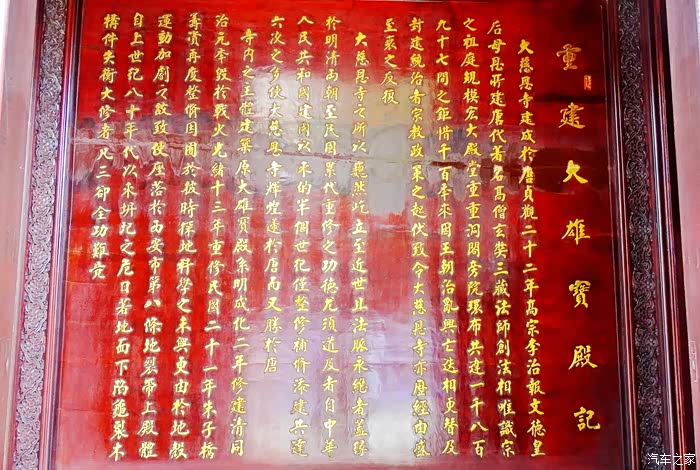 重建大雄寶殿記
大慈恩寺建成於唐貞觀二十二年高宗李治報文德皇
后母恩所建唐代著名高僧玄奘三藏法師創法相唯識宗
之祖庭規模宏大殿堂重重洞開旁院環布共達一千八百
九十七間之鉅惜千百年來因王朝治亂興亡迭相更替及
封建統治者宗教政策之起伏致令大慈恩寺亦歷經由盛
至衰之反復
大慈恩寺之所以巍然屹立至近世且法脈永繼者蓋緣
於明清兩朝至民國累代重修之功德尤須道及者自中華
人民共和國建國以來的半個世紀僅整修補修添建共達
六次之多使大慈恩寺輝煌遠於唐而又勝於唐
寺內之主體建築原大雄寶殿系明成化二年修建清同
治元年毀於戰火光緒十三年重修民國二十一年朱子橋
籌資再度整修因囿於彼時探地科學之未興更由於地殼
運動加劇之故致使座落於西安市第八條地裂帶上殿體
自上世紀八十年代以來坍圮之危日著地面下陷龜裂木
構件失衡大修者凡三卻全功難竟
汽车之家